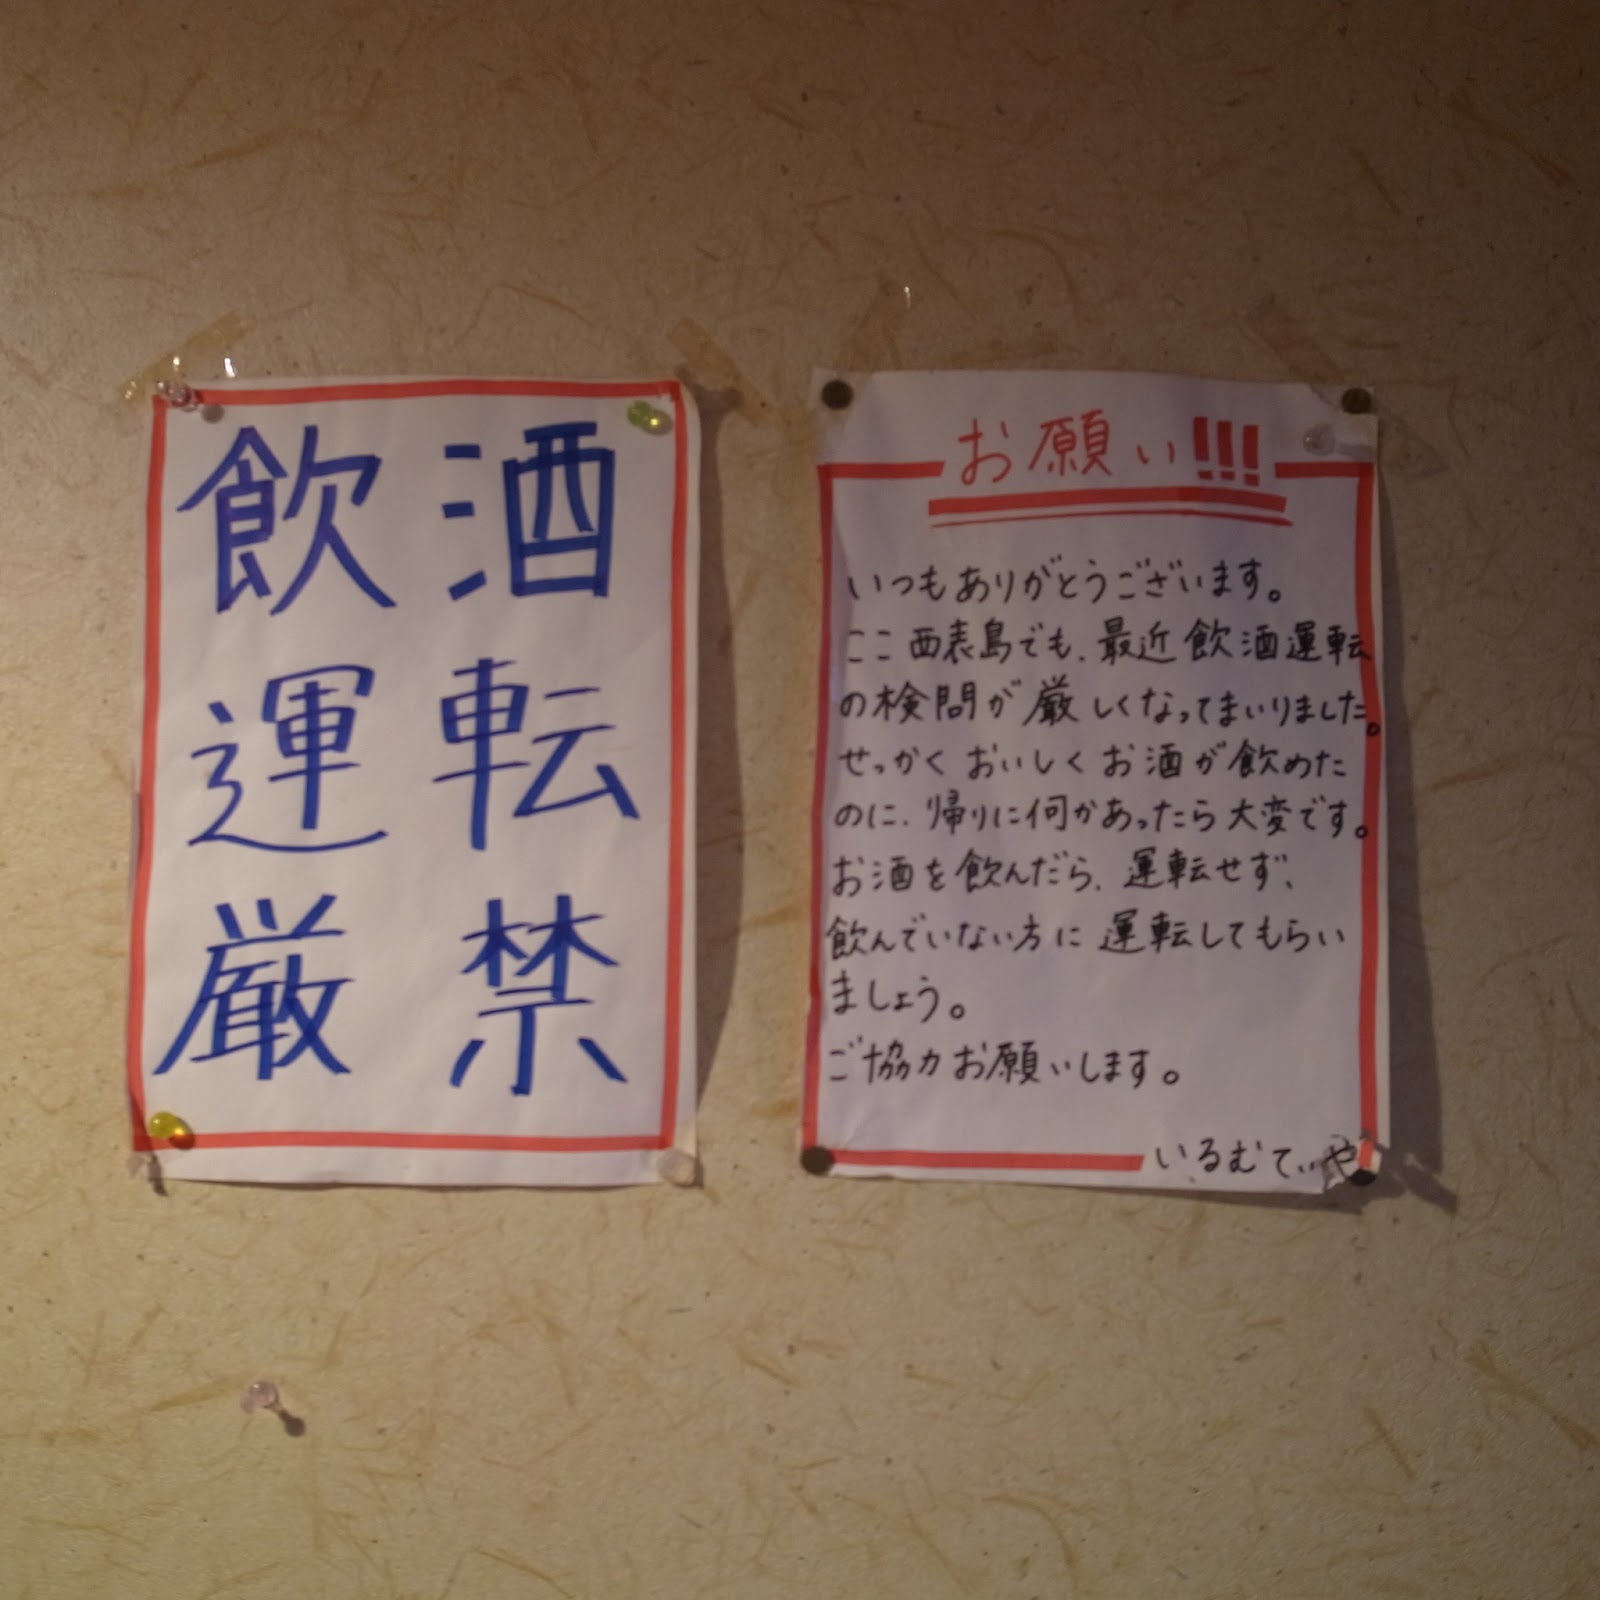 飲酒
運転
厳禁
お願い!!!
いつもありがとうございます。
ここ西表島でも、最近飲酒運転
の検問が厳しくなってまいりました。
せっかくおいしくお酒が飲めた
のに、帰りに何かあったら大変です。
お酒を飲んだら、運転せず、
飲んでいない方に運転してもらい
ましょう。
ご協力お願いします。
いるむてぃや